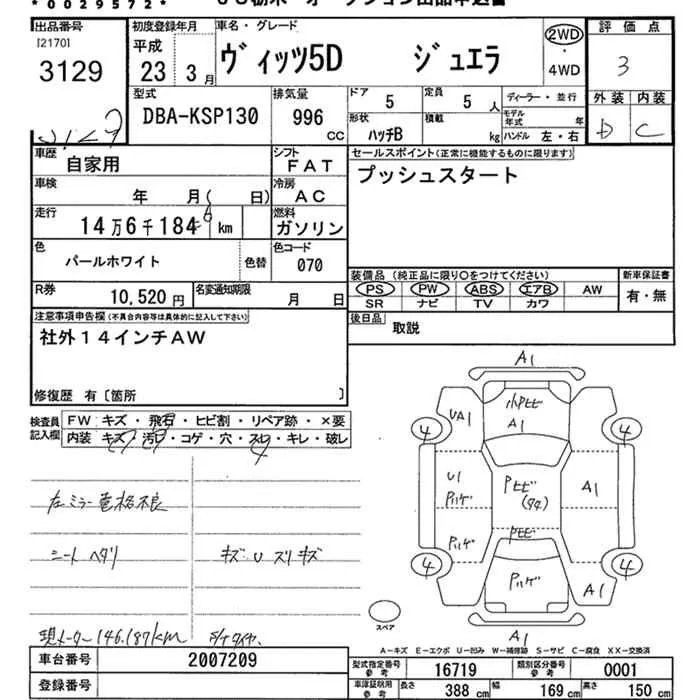 *0029572*
出品番号
[2170]
3129
3129
初度登録年月
平成
23年 3月
車名・グレード
ヴィッツ5D ジュエラ
2WD
・
4WD
評価点
3
外装 内装
D C
型式
DBA-KSP130
排気量
996
CC
ドア
5
定員
5人
形状
ハッチB
積載
kg
ディーラー・並行
モデル年式 年
ハンドル 左・右
車歴
自家用
シフト
FAT
車検
年 月( 日)
冷房
AC
走行
14万6千184 km
燃料
ガソリン
色
パールホワイト
色替
色コード
070
R券
10,520円
名変通知期限
月 日
セールスポイント(正常に機能するものに限ります)
プッシュスタート
装備品 (純正品に限り○をつけてください)
PS PW ABS エアB AW
SR ナビ TV カワ
新車保証書
有・無
後日品
取説
注意事項申告欄(不具合内容等は具体的に記入して下さい)
社外14インチAW
修復歴 有〔箇所 〕
検査員
記入欄
FW キズ・飛石・ヒビ割・リペア跡・×要
内装 キズ・汚レ・コゲ・穴・スレ・キレ・破レ
左ミラー電格不良
シートヘタリ
キズUスリキズ
現メーター146,187km
A1
小PヒビA1
UA1
4
4
U1
Pハゲ
Pヒビ
A1
Pハゲ
Pヒビ
4
4
Pハゲ
A1
A1
スペア
A-キズ E-エクボ U-凹み W-補修跡 S-サビ C-腐食 XX-交換済
車台番号
2007209
登録番号
型式指定番号
参考
16719
類別区分番号
参考
0001
車庫証明用
参考
長さ
388 cm
幅
169 cm
高さ
150 cm